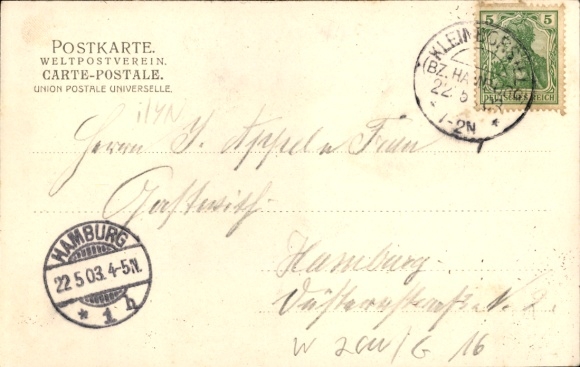 POSTKARTE.
WELTPOSTVEREIN.
CARTE-POSTALE.
UNION POSTALE UNIVERSELLE.
5 5
KLEIN BORSTEL
(BZ. HAMBURG)
22 5 03
* 1-2N *
Herrn J. Appel u Frau
Gastwirth
HAMBURG
22.5.03. 4-5N.
* 1 h
Hamburg
N. 2.
16